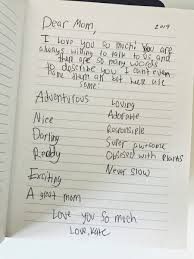 Dear Mom, 2019
I love you so much! You are
always willing to talk to us and
there are so many words
to describe you I can't even
name them all but here are
some.
Adventurous Loving
Nice Adorable
Darling Responsible
Ready Super awesome
Exciting Obsesed with plants
A great mom Never slow
Love you so much
Love, Kate